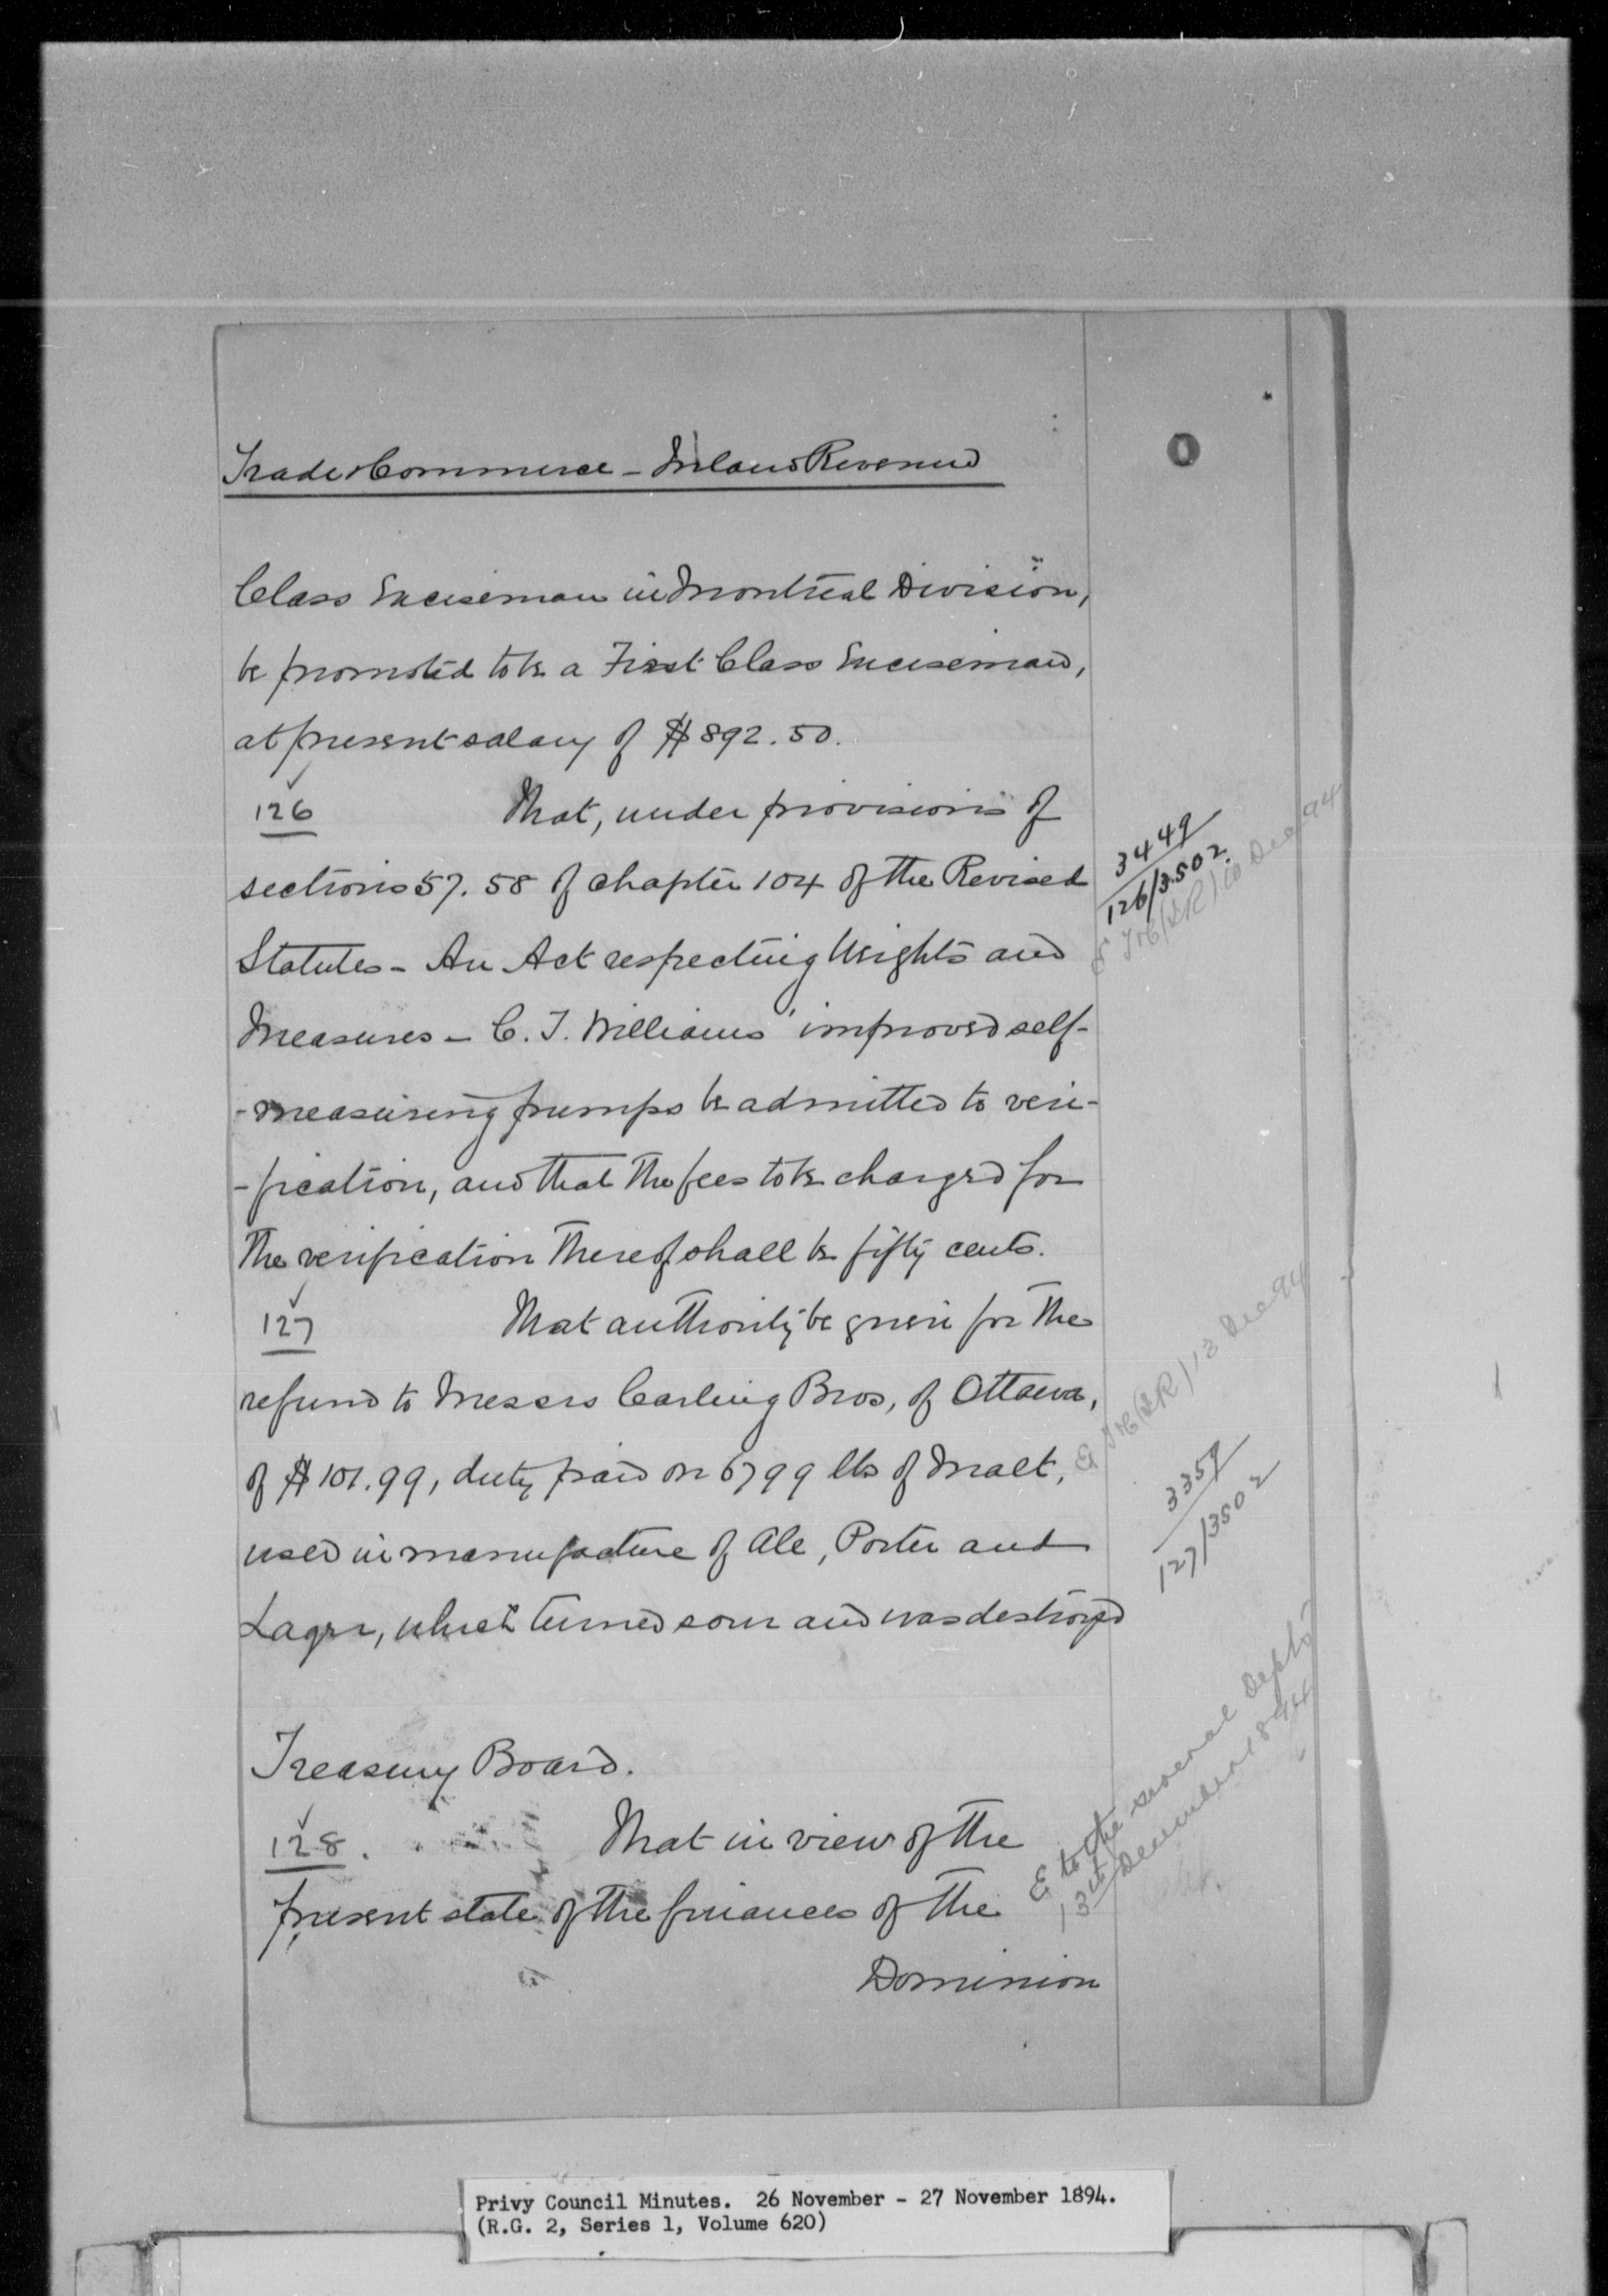 Trade & Commerce - Inland Revenue
Class Exciseman in Montreal Division,
be promoted to be a First Class Exciseman,
at present salary of $892.50.
126 That, under provisions of
sections 57. 58 of chapter 104 of the Revised
Statutes - An Act respecting Weights and
Measures - C. T. Williams' improved self-
-measuring pumps be admitted to veri-
-fication, and that the fees to be charged for
the verification thereof shall be fifty cents.
3449
126/3502.
E T&C (IR) 10 Dec 94
127 That authority be given for the
refund to Messrs Carling Bros, of Ottawa,
of $101.99, duty paid on 6799 lbs of Malt,
used in manufacture of Ale, Porter and
Lager, which turned sour and was destroyed
E T&C (IR) 13 Dec 94
3359
127/3502
Treasury Board.
128. That in view of the
present state of the finances of the
Dominion
E to the several Depts
13th December 1894
Privy Council Minutes. 26 November - 27 November 1894.
(R.G. 2, Series 1, Volume 620)